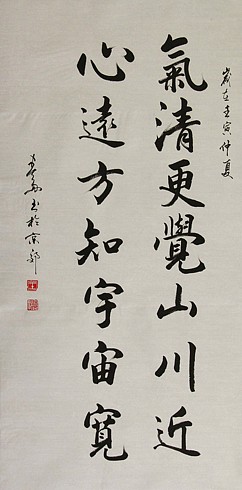 歲在壬寅仲夏
氣清更覺山川近
心遠方知宇宙寬
書於京郊